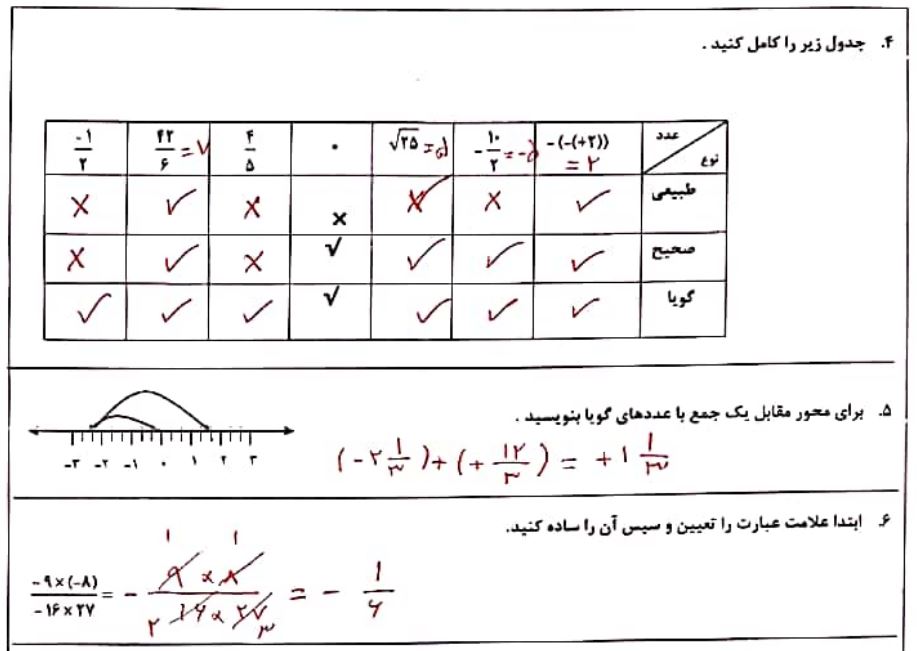 ۴. جدول زیر را کامل کنید .
عدد نوع | -(-(+۲)) = ۲ | -۱۰/۲ = -۵ | √۲۵ = ۵ | ۰ | ۴/۵ | ۴۲/۶ = ۷ | -۱/۲
طبیعی | ✓ | × | ✓ | × | × | ✓ | ×
صحیح | ✓ | ✓ | ✓ | √ | × | ✓ | ×
گویا | ✓ | ✓ | ✓ | √ | ✓ | ✓ | ✓
۵. برای محور مقابل یک جمع با عددهای گویا بنویسید .
-۳ -۲ -۱ ۰ ۱ ۲ ۳
(-۲ ۱/۳) + (+ ۱۲/۳) = +۱ ۱/۳
۶. ابتدا علامت عبارت را تعیین و سپس آن را ساده کنید.
۱ ۱
-۹×(-۸) / -۱۶×۲۷ = - ۹×۸ / ۱۶×۲۷ = - ۱/۶
۲ ۳